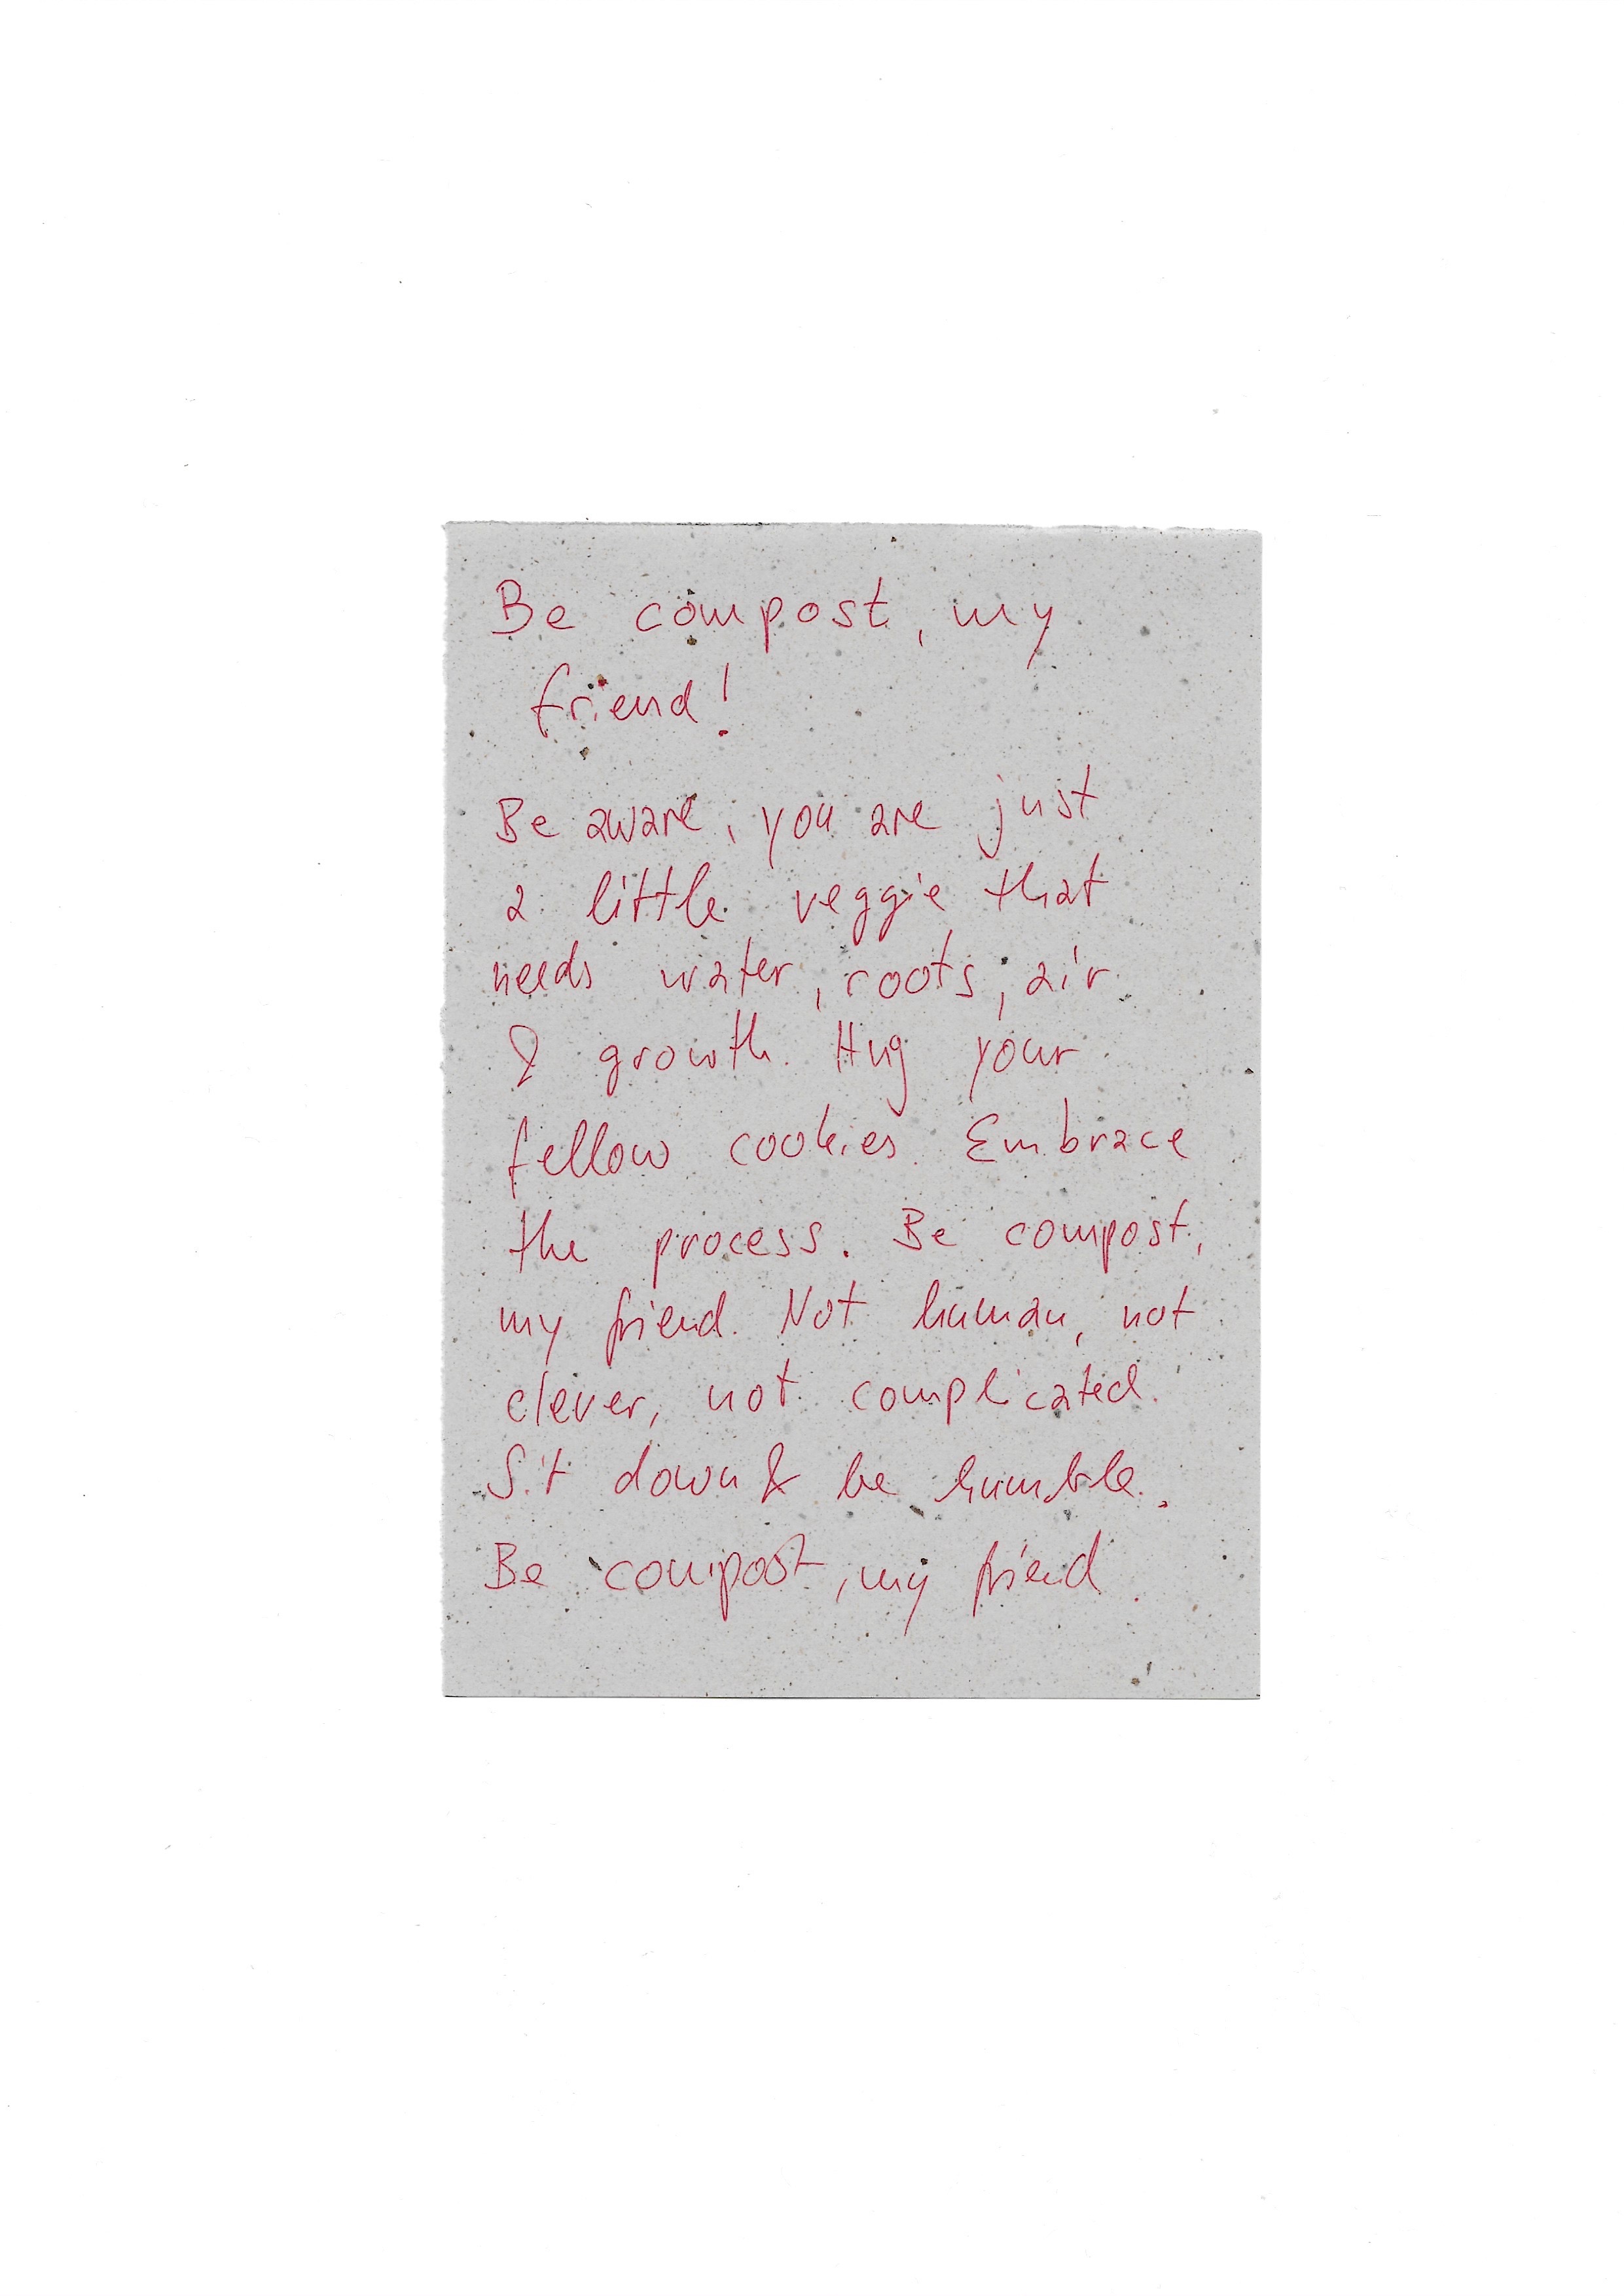 Be compost, my
friend!
Be aware, you are just
a little veggie that
needs water, roots, air
& growth. Hug your
fellow cookies. Embrace
the process. Be compost,
my friend. Not human, not
clever, not complicated.
Sit down & be humble.
Be compost, my friend.